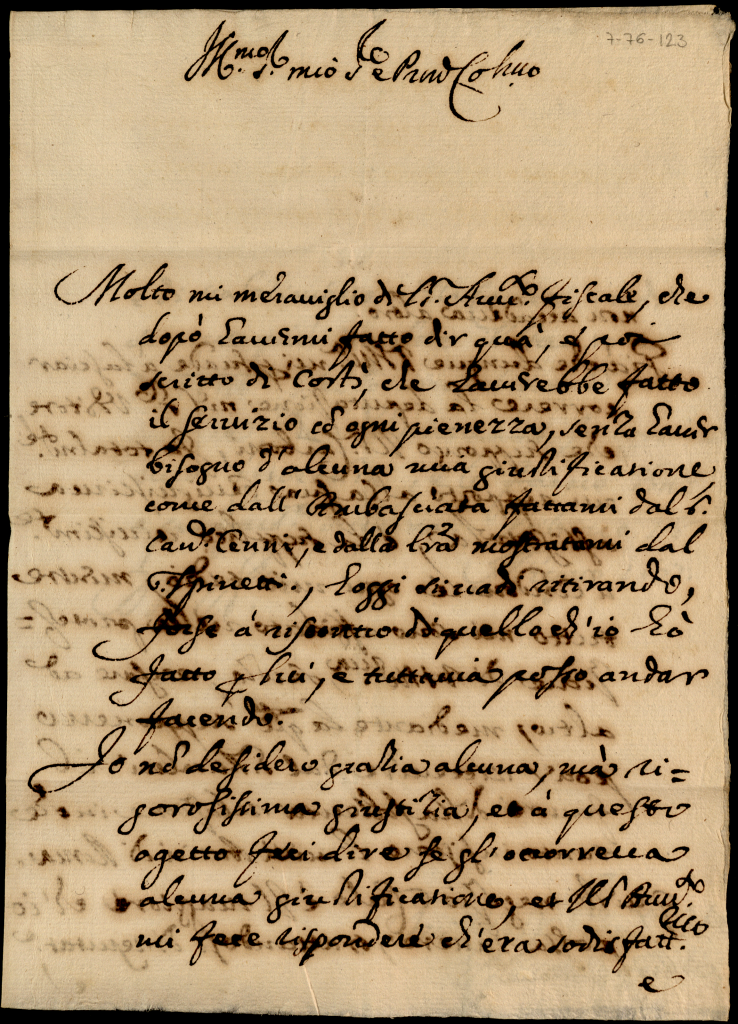 7-76-123
Ill.mo S.r mio S.re e Pron Col.mo
Molto mi meraviglio del S.r Aud.re fiscale, che
dopò havermi fatto dir quà, e poi
scritto di Corte, che haverebbe fatto
il servizio cõ ogni pienezza, senza haver
bisogno d'alcuna mia giustificatione,
come dall'Ambasciata fattami dal S.r
Cav.r Cenni, e dalla l̃ra mostratami dal
S. Spinetti, hoggi si vadi ritirando,
forse à riscontro di quello ch'io hò
fatto p lui, e tuttavia posso andar
facendo.
Io nõ desidero gratia alcuna, mà ri=
gorosissima giustitia, et à questo
ogetto feci dire se gl'occorreva
alcuna giustificatione, et il S.r Aud.re
mi fece rispondere ch'era sodisfatt.mo
e